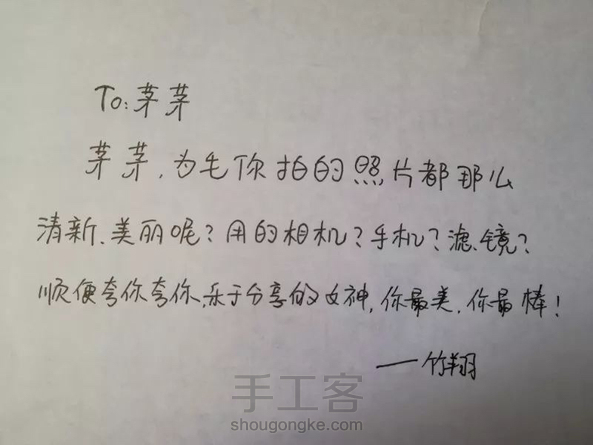 To:茅茅
茅茅,为毛你拍的照片都那么
清新、美丽呢?用的相机?手机?滤镜?
顺便夸你夸你,乐于分享的女神,你最美,你最棒!
——竹翔
手工客
shougongke.com